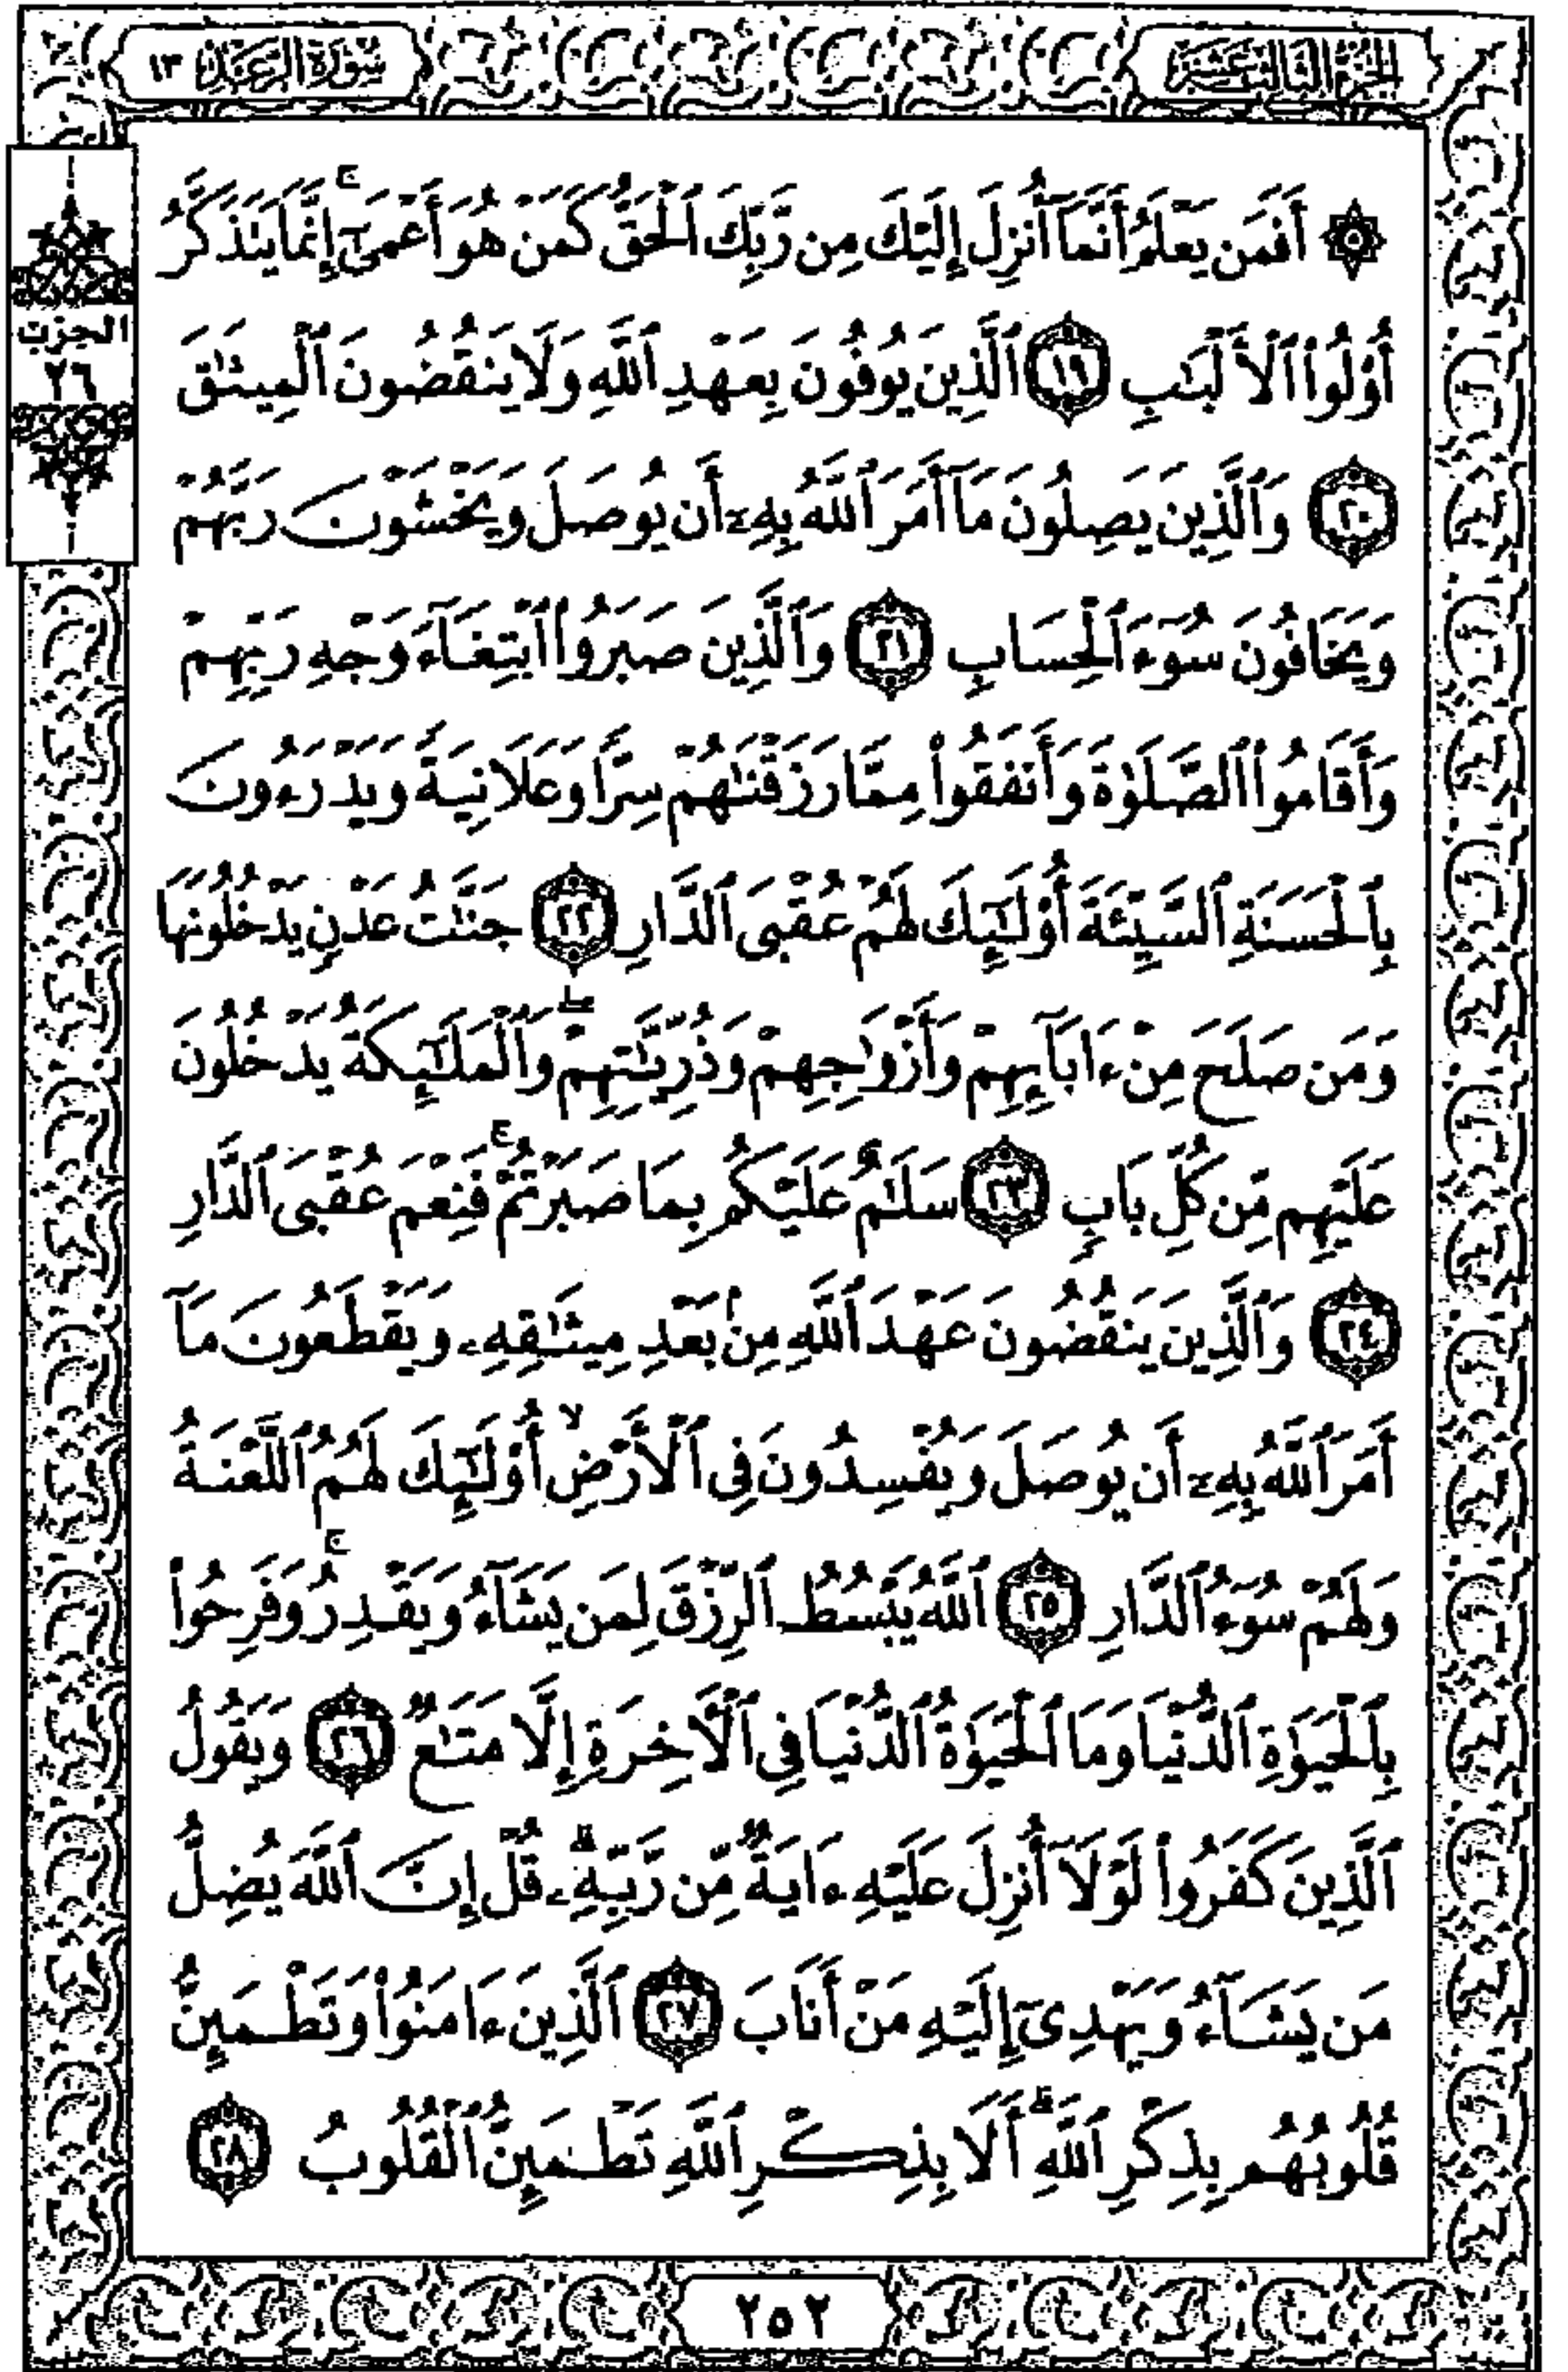 الجزء الثالث عشر
سورة الرعد ١٣
۞ أَفَمَن يَعْلَمُ أَنَّمَآ أُنزِلَ إِلَيْكَ مِن رَّبِّكَ ٱلْحَقُّ كَمَنْ هُوَ أَعْمَىٰٓ ۚ إِنَّمَا يَتَذَكَّرُ
أُو۟لُوا۟ ٱلْأَلْبَـٰبِ ١٩ ٱلَّذِينَ يُوفُونَ بِعَهْدِ ٱللَّهِ وَلَا يَنقُضُونَ ٱلْمِيثَـٰقَ
٢٠ وَٱلَّذِينَ يَصِلُونَ مَآ أَمَرَ ٱللَّهُ بِهِۦٓ أَن يُوصَلَ وَيَخْشَوْنَ رَبَّهُمْ
وَيَخَافُونَ سُوٓءَ ٱلْحِسَابِ ٢١ وَٱلَّذِينَ صَبَرُوا۟ ٱبْتِغَآءَ وَجْهِ رَبِّهِمْ
وَأَقَامُوا۟ ٱلصَّلَوٰةَ وَأَنفَقُوا۟ مِمَّا رَزَقْنَـٰهُمْ سِرًّا وَعَلَانِيَةً وَيَدْرَءُونَ
بِٱلْحَسَنَةِ ٱلسَّيِّئَةَ أُو۟لَـٰٓئِكَ لَهُمْ عُقْبَى ٱلدَّارِ ٢٢ جَنَّـٰتُ عَدْنٍ يَدْخُلُونَهَا
وَمَن صَلَحَ مِنْ ءَابَآئِهِمْ وَأَزْوَٰجِهِمْ وَذُرِّيَّـٰتِهِمْ ۖ وَٱلْمَلَـٰٓئِكَةُ يَدْخُلُونَ
عَلَيْهِم مِّن كُلِّ بَابٍ ٢٣ سَلَـٰمٌ عَلَيْكُم بِمَا صَبَرْتُمْ ۚ فَنِعْمَ عُقْبَى ٱلدَّارِ
٢٤ وَٱلَّذِينَ يَنقُضُونَ عَهْدَ ٱللَّهِ مِنۢ بَعْدِ مِيثَـٰقِهِۦ وَيَقْطَعُونَ مَآ
أَمَرَ ٱللَّهُ بِهِۦٓ أَن يُوصَلَ وَيُفْسِدُونَ فِى ٱلْأَرْضِ ۙ أُو۟لَـٰٓئِكَ لَهُمُ ٱللَّعْنَةُ
وَلَهُمْ سُوٓءُ ٱلدَّارِ ٢٥ ٱللَّهُ يَبْسُطُ ٱلرِّزْقَ لِمَن يَشَآءُ وَيَقْدِرُ ۚ وَفَرِحُوا۟
بِٱلْحَيَوٰةِ ٱلدُّنْيَا وَمَا ٱلْحَيَوٰةُ ٱلدُّنْيَا فِى ٱلْـَٔاخِرَةِ إِلَّا مَتَـٰعٌ ٢٦ وَيَقُولُ
ٱلَّذِينَ كَفَرُوا۟ لَوْلَآ أُنزِلَ عَلَيْهِ ءَايَةٌ مِّن رَّبِّهِۦ ۗ قُلْ إِنَّ ٱللَّهَ يُضِلُّ
مَن يَشَآءُ وَيَهْدِىٓ إِلَيْهِ مَنْ أَنَابَ ٢٧ ٱلَّذِينَ ءَامَنُوا۟ وَتَطْمَئِنُّ
قُلُوبُهُم بِذِكْرِ ٱللَّهِ ۗ أَلَا بِذِكْرِ ٱللَّهِ تَطْمَئِنُّ ٱلْقُلُوبُ ٢٨
الحزب
٢٦
٢٥٢